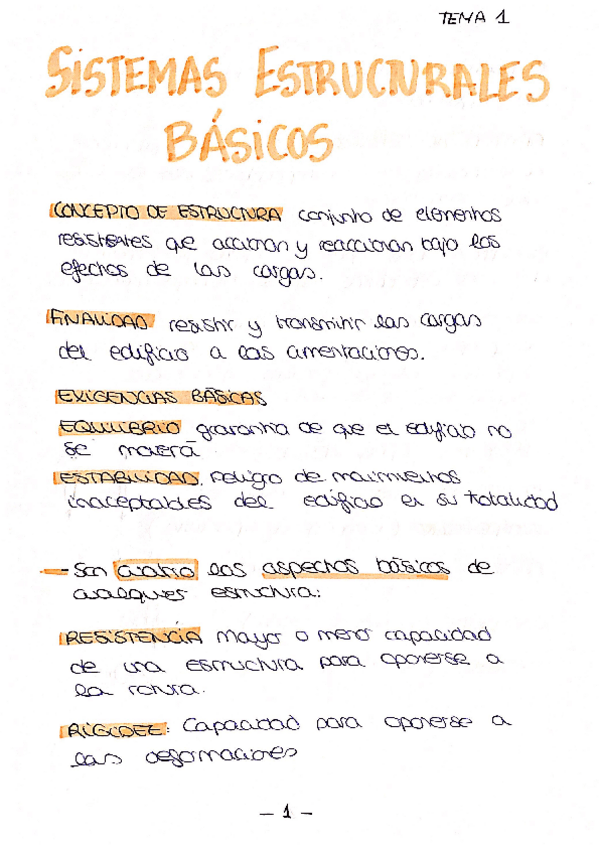 TEMA 1
SISTEMAS ESTRUCTURALES
BÁSICOS
CONCEPTO DE ESTRUCTURA conjunto de elementos
resistentes que accionan y reaccionan bajo los
efectos de las cargas.
FINALIDAD resistir y transmitir las cargas
del edificio a las cimentaciones.
EXIGENCIAS BÁSICAS
EQUILIBRIO garantia de que el edificio no
se moverá
ESTABILIDAD. Peligro de movimientos
inaceptables del edificio en su totalidad
- Son cuatro los aspectos básicos de
cualquier estructura:
RESISTENCIA Mayor o menor capacidad
de una estructura para oponerse a
la rotura.
RIGIDEZ: Capacidad para oponerse a
las deformaciones
- 1 -